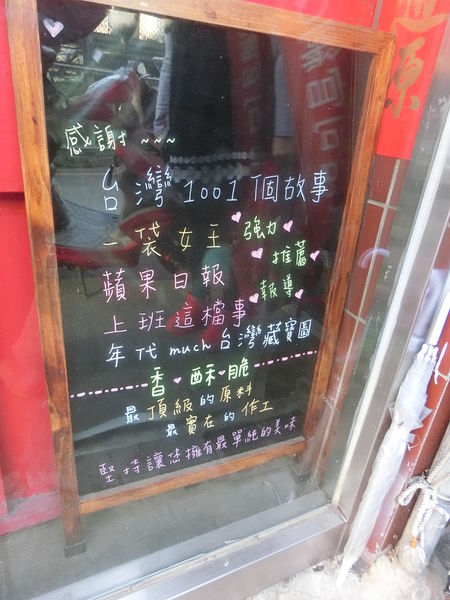 感謝~~~
台灣1001個故事
一袋女王
強力
推薦
報導
蘋果日報
上班這檔事
年代much台灣藏寶圖
香酥脆
最頂級的原料
最實在的作工
堅持讓您擁有最單純的美味
原